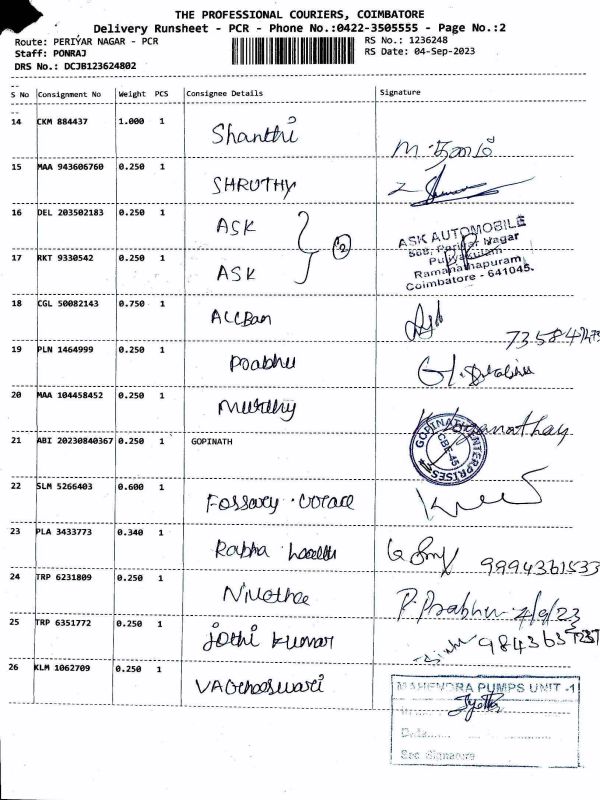 THE PROFESSIONAL COURIERS, COIMBATORE
Delivery Runsheet - PCR - Phone No.:0422-3505555 - Page No.:2
Route: PERIYAR NAGAR - PCR
RS No.: 1236248
Staff: PONRAJ
RS Date: 04-Sep-2023
DRS No.: DCJB123624802
S No Consignment No Weight PCS Consignee Details Signature
14 CKM 884437 1.000 1 Shanthi
15 MAA 943606760 0.250 1 SHRUTHY
16 DEL 203502183 0.250 1 ASK
17 RKT 9330542 0.250 1 ASK
ASK AUTOMOBILE
568, Periyar Nagar
Puliyakulam
Ramanathapuram
Coimbatore - 641045.
18 CGL 50082143 0.750 1
19 PLN 1464999 0.250 1 Prabhu
20 MAA 104458452 0.250 1 Murthy
21 ABI 20230840367 0.250 1 GOPINATH
GOPINATH ENTERPRISES
CBE-45
22 SLM 5266403 0.600 1
23 PLA 3433773 0.340 1 9994361533
24 TRP 6231809 0.250 1 P. Prabhu 4/9/23
25 TRP 6351772 0.250 1 Jothi Kumar
26 KLM 1062709 0.250 1
MAHENDRA PUMPS UNIT -1
Jyothi
Date
Sec Signature